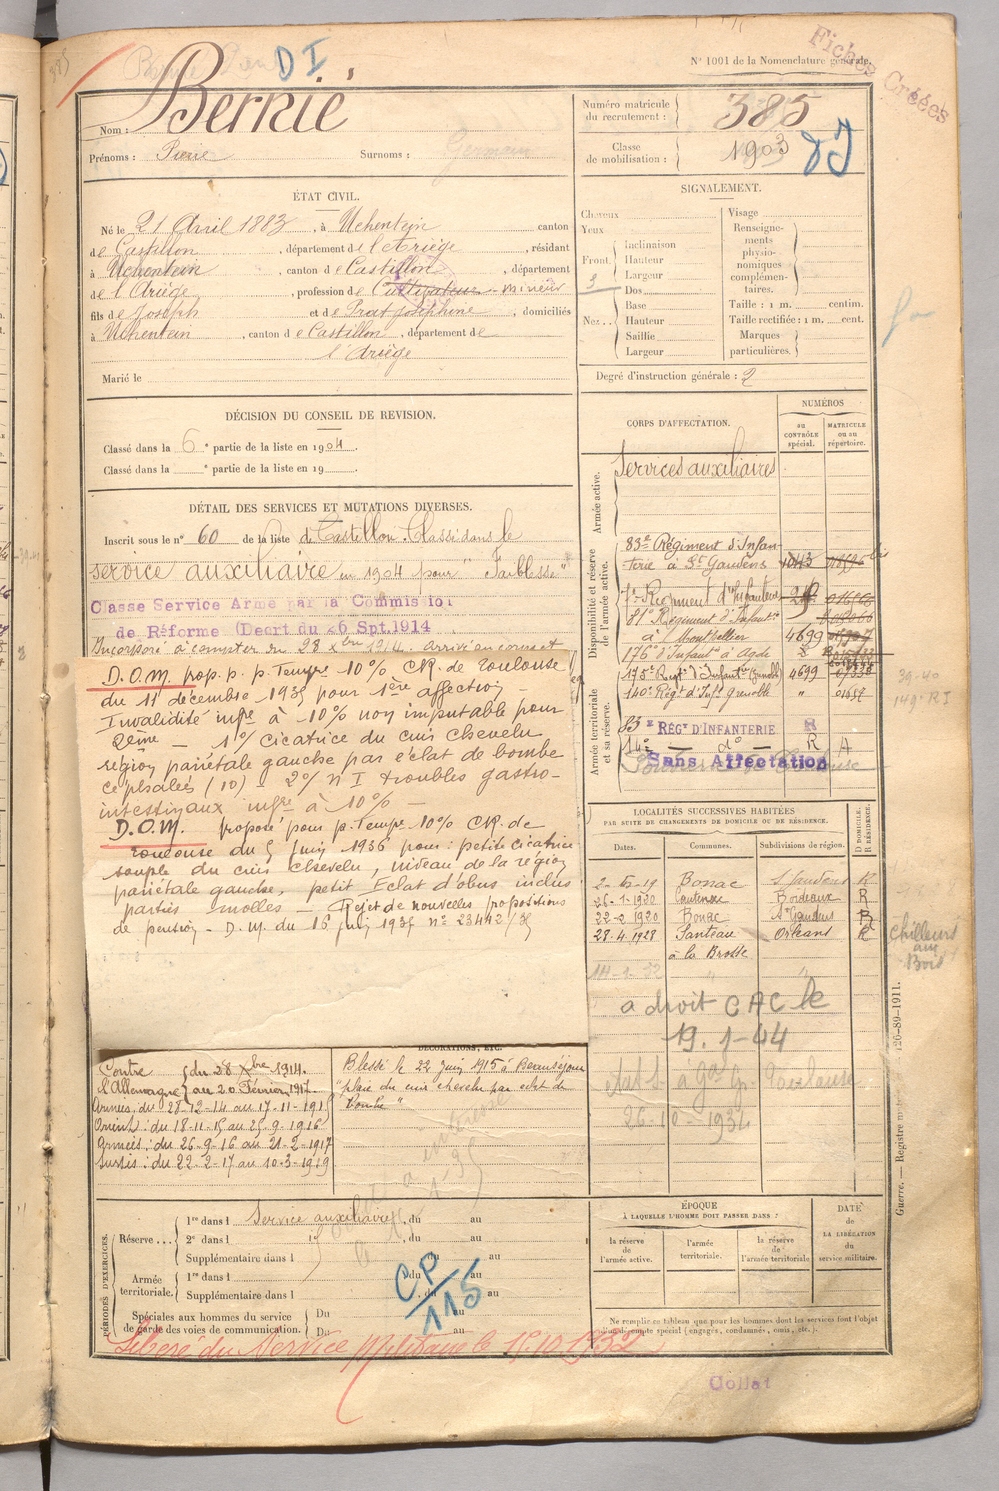 DI
N° 1001 de la Nomenclature générale.
Fiches Créées
Nom : Berrié
Prénoms : Pierre Surnoms : Germain
Numéro matricule du recrutement : 385
Classe de mobilisation : 1903
ÉTAT CIVIL.
Né le 21 Avril 1883, à Uchentein canton
de Castillon, département de l'Ariège, résidant
à Uchentein, canton de Castillon, département
de l'Ariège, profession de Cultivateur mineur
fils de Joseph et de Prat Joséphine, domiciliés
à Uchentein, canton de Castillon, département de
l'Ariège
Marié le
SIGNALEMENT.
Cheveux
Yeux
Front.
Inclinaison
Hauteur
Largeur
Nez..
Dos
Base
Hauteur
Saillie
Largeur
Visage
Renseignements physionomiques complémentaires.
Taille : 1 m. centim.
Taille rectifiée : 1 m. cent.
Marques particulières.
Degré d'instruction générale : 2
DÉCISION DU CONSEIL DE REVISION.
Classé dans la 6e partie de la liste en 1904.
Classé dans la e partie de la liste en 19
DÉTAIL DES SERVICES ET MUTATIONS DIVERSES.
Inscrit sous le n° 60 de la liste de Castillon. Classé dans le
service auxiliaire en 1904 pour "Faiblesse"
Classe Service Armé par la Commission
de Réforme (Decrt du 26 Spt. 1914
Incorporé à compter du 28 Xbre 1914. arrivé au corps et
D.O.M. prop. p. p. Tempre 10% CR. de Toulouse
du 11 décembre 1935 pour 1ère affection -
Invalidité infre à 10% non imputable pour
2ème - 1°/ cicatrice du cuir chevelu
région pariétale gauche par éclat de bombe
céphalées (10) - 2°/ N I troubles gastro-
intestinaux infre à 10% -
D.O.M. proposé pour p. Tempre 10% CR. de
Toulouse du 5 Juin 1936 pour : petite cicatrice
souple du cuir chevelu, niveau de la région
pariétale gauche, petit Eclat d'obus inclus
parties molles - Rejet de nouvelles propositions
de pension - D.M. du 16
CORPS D'AFFECTATION.
NUMÉROS
au contrôle spécial.
MATRICULE ou au répertoire.
Armée active.
Services auxiliaires
Disponibilité et réserve de l'armée active.
83e Régiment d'Infan-
terie à St Gaudens
7e Régiment d'Infanterie
81e Régiment d'Infantie
à Montpellier 4699
176e d'Infant. à Agde
175e Regt d'Infantie Grenoble 4699
140e Régt d'Inf. Grenoble
39-40
149e RI
Armée territoriale et sa réserve.
83e RÉGt D'INFANTERIE R
14e — d° — R A
Sans Affectation
LOCALITÉS SUCCESSIVES HABITÉES
PAR SUITE DE CHANGEMENTS DE DOMICILE OU DE RÉSIDENCE.
Dates. Communes. Subdivisions de région. D DOMICILE. R RÉSIDENCE.
Bonac St Gaudens R
26-1-1920 Bordeaux R
22-2-1920 Bonac St Gaudens R
28-4-1928 Santeau Orléans R
à la Brosse
Chilleurs
aux
Bois
a droit CAC le
19.1-44
Toulouse
26-10-1934
DÉCORATIONS, ETC.
Contre l'Allemagne du 28 Xbre 1914.
au 20 Février 1917.
Armées, du 28-12-14 au 17-11-1915
Orient : du 18-11-15 au 25-9-1916
Armées : du 26-9-16 au 21-2-1917
Sursis : du 22-2-17 au 10-3-1919
Blessé le 22 Juin 1915 à Beauséjour
"plaie du cuir chevelu par éclat de
bombe"
PÉRIODES D'EXERCICES.
Réserve ...
1re dans l Service auxiliaire, du au
2e dans l du au
Supplémentaire dans l du au
Armée territoriale.
1re dans l du au
Supplémentaire dans l du au
Spéciales aux hommes du service de garde des voies de communication.
Du au
Du au
CP/115
ÉPOQUE
À LAQUELLE L'HOMME DOIT PASSER DANS :
la réserve de l'armée active.
l'armée territoriale.
la réserve de l'armée territoriale
DATE de LA LIBÉRATION du service militaire.
Ne remplir ce tableau que pour les hommes dont les services font l'objet
d'un décompte spécial (engagés, condamnés, omis, etc.).
Libéré du Service Militaire le 15.10.1932
Guerre. — Registre
126-89-1911.